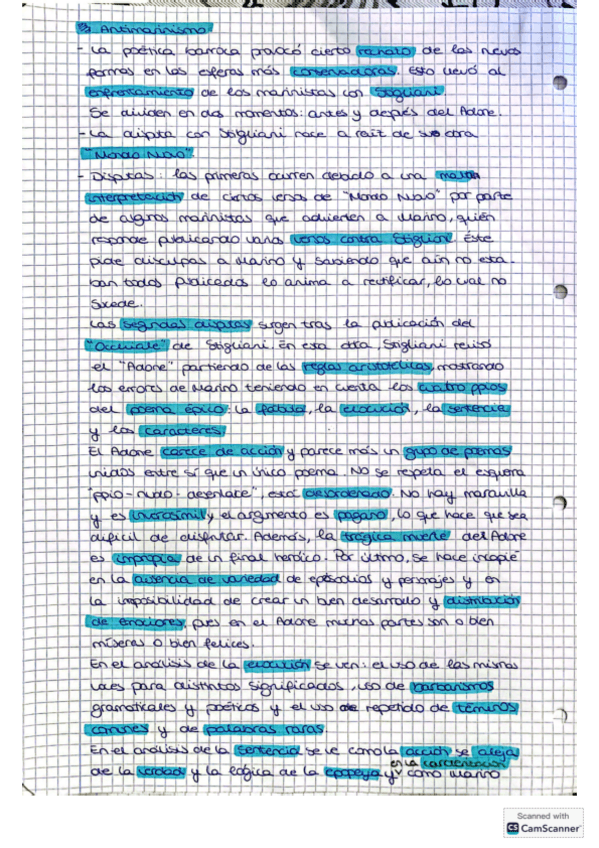 Antimarinismo
- La poética barroca provocó cierto rechazo de las nuevas
formas en las esferas más conservadoras. Esto llevó al
enfrentamiento de los marinistas con Stigliani.
Se dividen en dos momentos: antes y después del Adone.
- La disputa con Stigliani nace a raíz de su obra
"Mondo Nuovo".
- Disputas: las primeras ocurren debido a una mala
interpretación de ciertos versos de "Mondo Nuovo" por parte
de algunos marinistas que advierten a Marino, quién
responde publicando varios versos contra Stigliani. Éste
pide disculpas a Marino y sabiendo que aún no esta-
ban todos publicados lo anima a rectificar, lo cual no
sucede.
Las segundas disputas surgen tras la publicación del
"Occhiale" de Stigliani. En esta obra, Stigliani revisó
el "Adone" partiendo de las reglas aristotélicas, mostrando
los errores de Marino teniendo en cuenta los cuatro ppios
del poema épico: la fábula, la elocución, la sentencia
y los caracteres.
El Adone carece de acción y parece más un grupo de poemas
unidos entre sí que un único poema. No se respeta el esquema
"ppio-nudo-desenlace", está desordenado. No hay maravilla
y es inverosímil y el argumento es pagano, lo que hace que sea
difícil de disfrutar. Además, la trágica muerte del Adone
es impropia de un final heroico. Por último, se hace incapié
en la ausencia de variedad de episodios y personajes y en
la imposibilidad de crear un bien desarrollo y distribución
de emociones, pues en el Adone muchas partes son o bien
míseras o bien felices.
En el análisis de la elocución se ven: el uso de las mismas
voces para distintos significados, uso de barbarismos
gramaticales y poéticos y el uso repetido de términos
comunes y de palabras raras.
En el análisis de la sentencia se ve como la acción se aleja
de la verdad y la lógica de la epopeya y en la caracterización como Marino
Scanned with
CS CamScanner